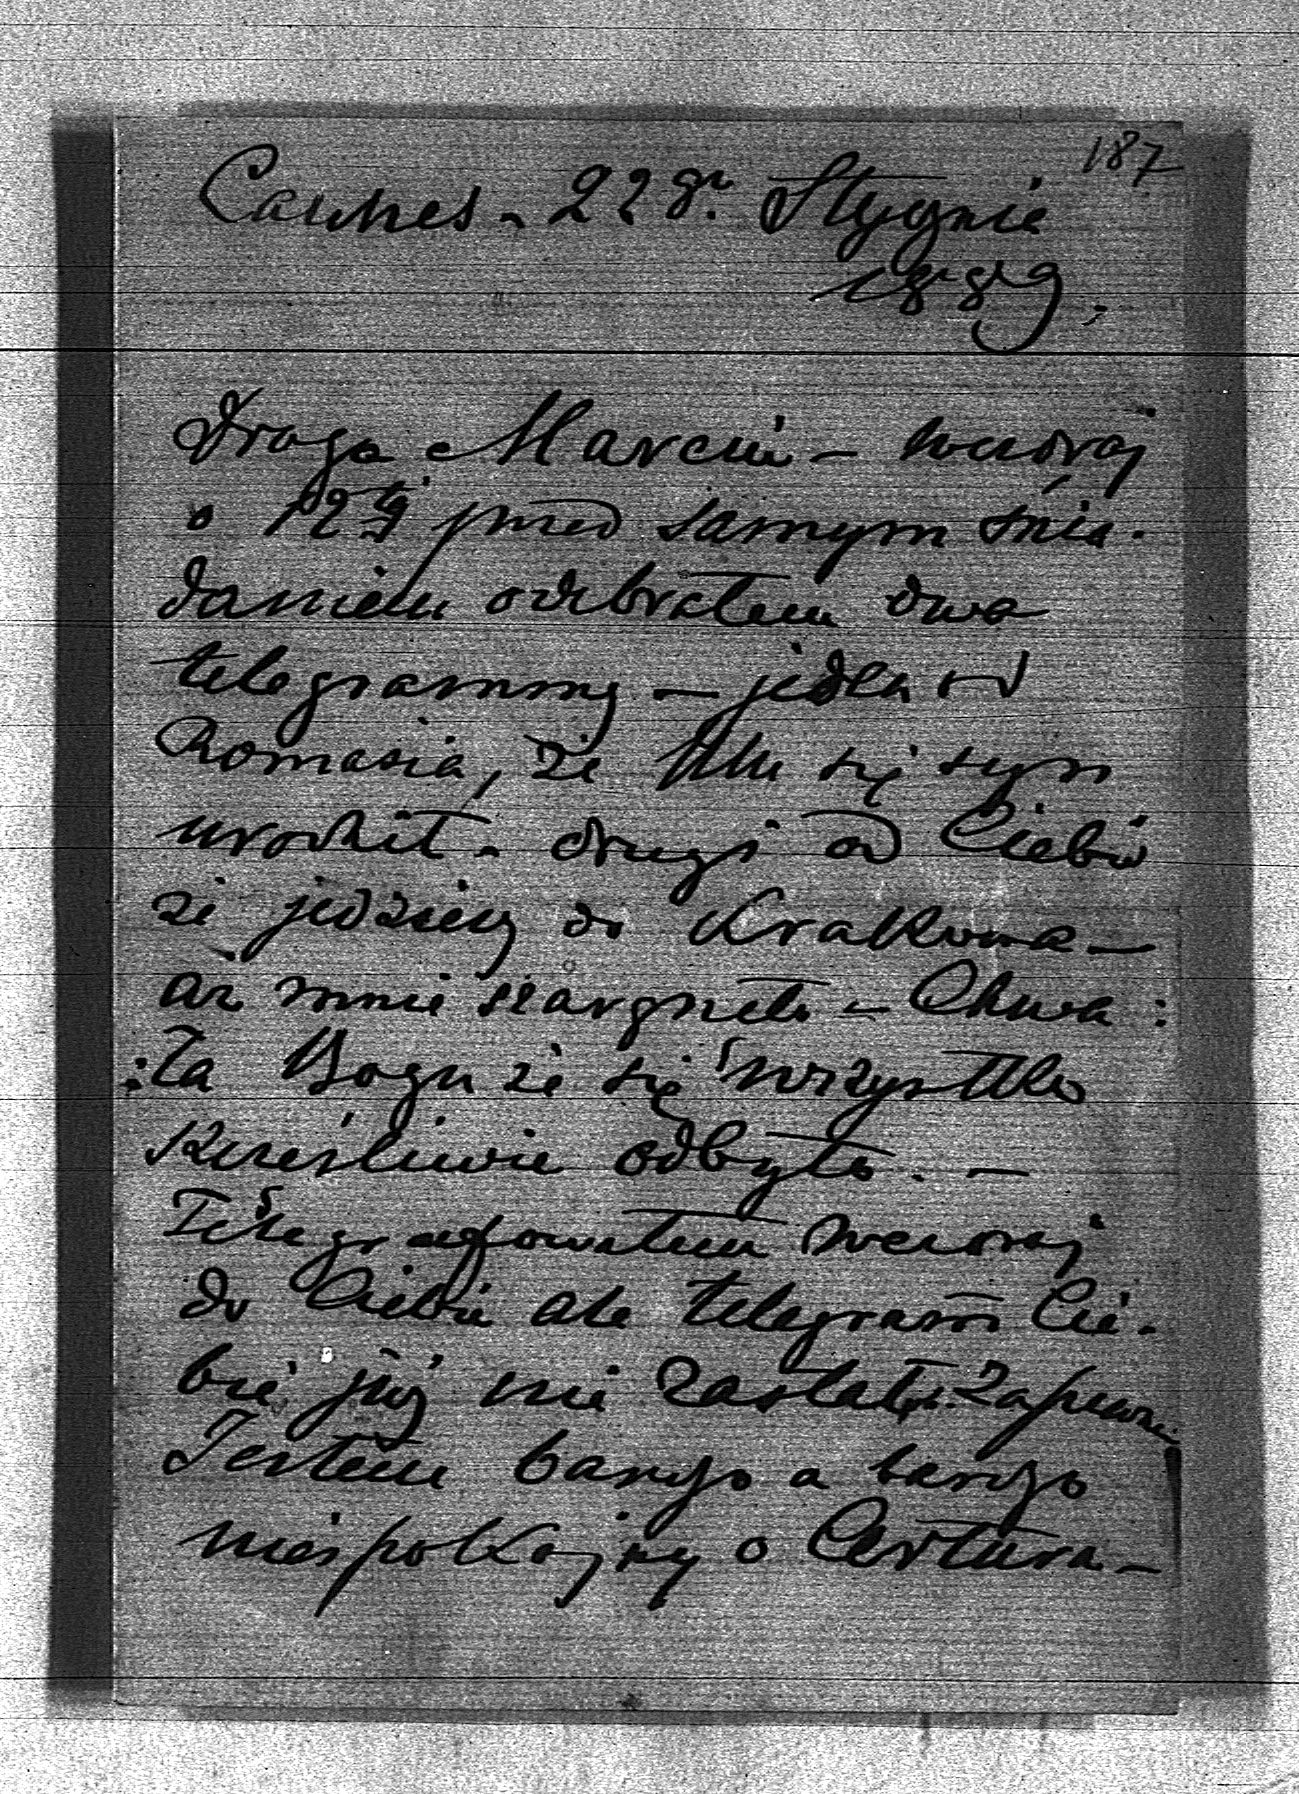 187
Cannes - 22 gr. Stycznia
1889.
Droga Marciu - wczoraj
o 12tej przed samym śnia-
daniem odebrałem dwa
telegrammy - jeden od
Romasia, że Mu się syn
urodził - drugi od Ciebie
że jedziesz do Krakowa -
aż mnie szargnęło - Chwa:
:ła Bogu że się wszystko
szczęśliwie odbyło. -
Telegrafowałem wczoraj
do Ciebie ale telegram Cie-
bie już nie zastał zapewne
Jestem bardzo a bardzo
niespokojny o